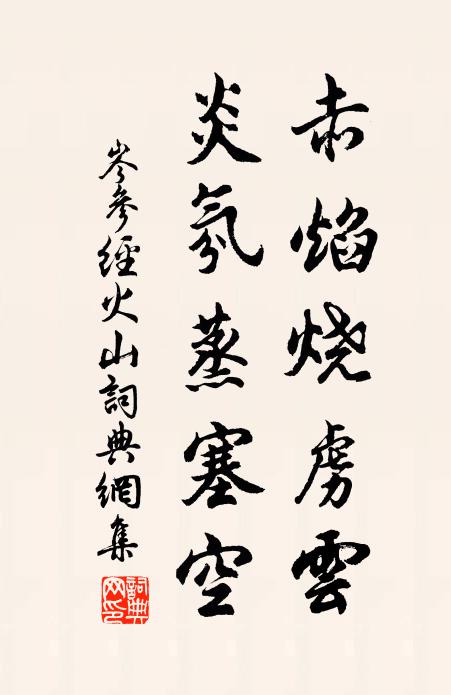 赤焰烧虏雲
炎氛蒸塞空
岑參經火山詞典網集
詞典网印